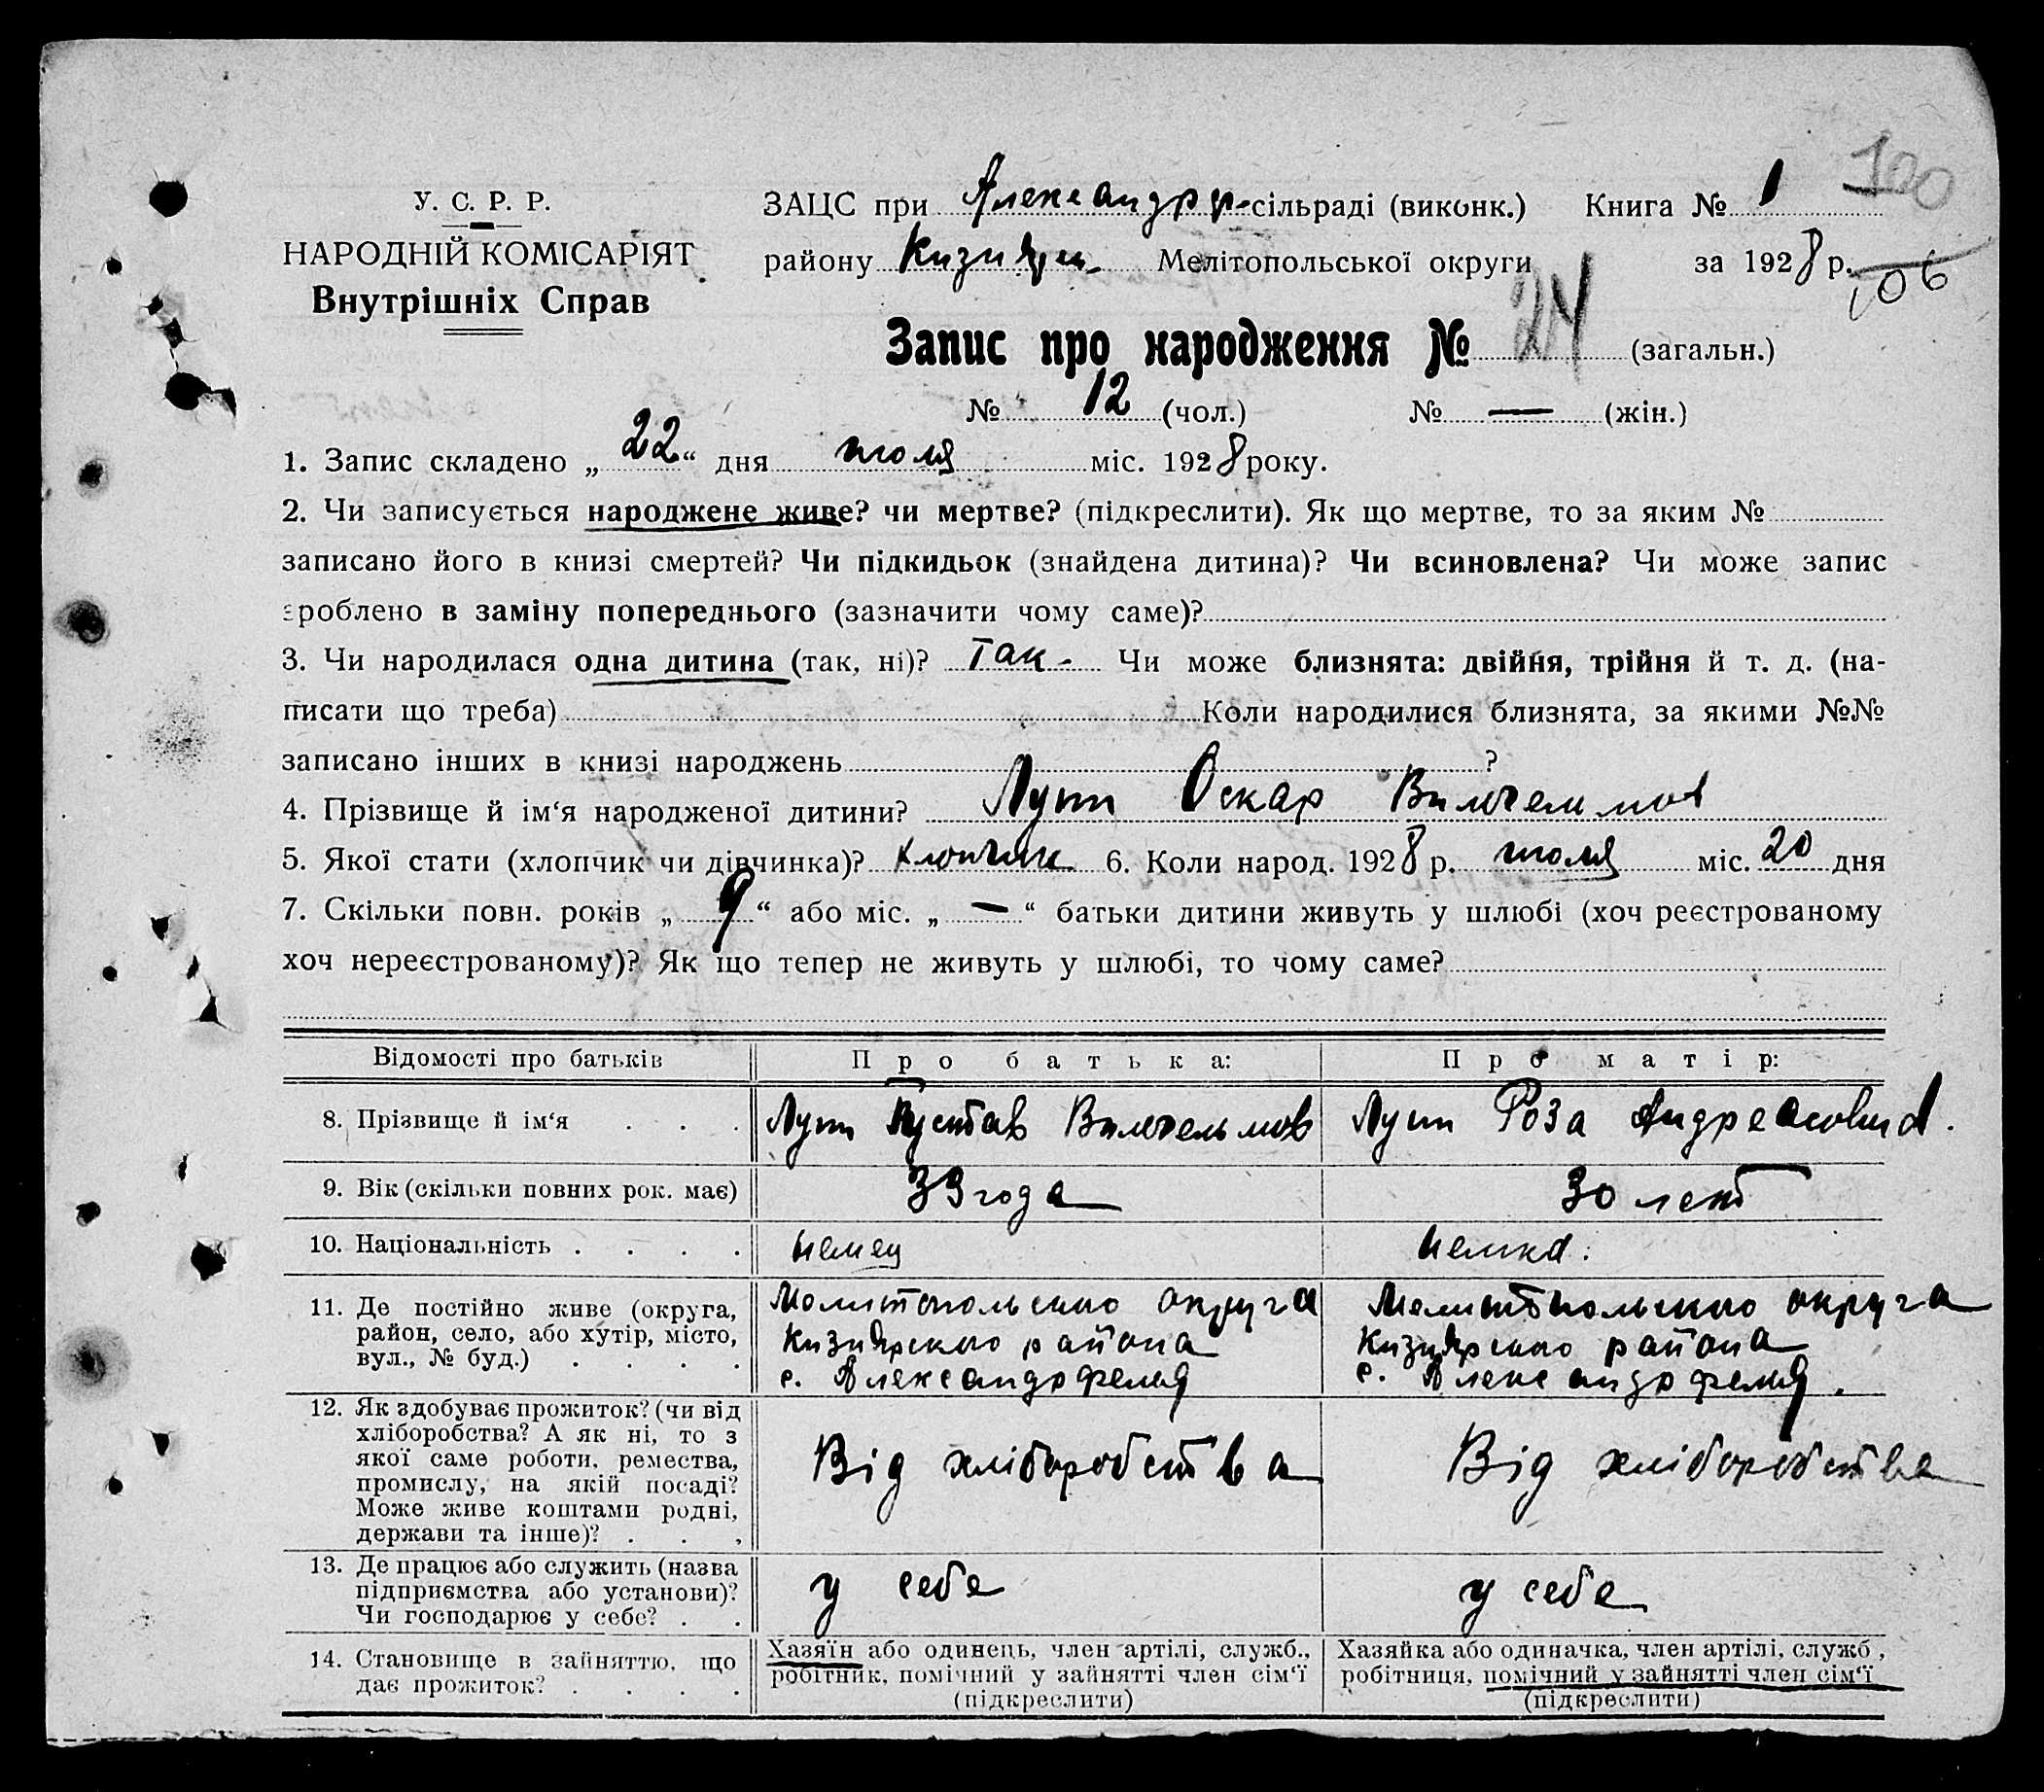 100
У. С. Р. Р. ЗАЦС при Александр сільраді (виконк.) Книга № 1
НАРОДНІЙ КОМІСАРІЯТ району Кизияр. Мелітопольської округи за 1928 р. 106
Внутрішніх Справ
Запис про народження № 24 (загальн.)
№ 12 (чол.) № — (жін.)
1. Запис складено „22“ дня июля міс. 1928 року.
2. Чи записується народжене живе? чи мертве? (підкреслити). Як що мертве, то за яким №
записано його в книзі смертей? Чи підкидьок (знайдена дитина)? Чи всиновлена? Чи може запис
зроблено в заміну попереднього (зазначити чому саме)?
3. Чи народилася одна дитина (так, ні)? Так. Чи може близнята: двійня, трійня й т. д. (на-
писати що треба) Коли народилися близнята, за якими №№
записано інших в книзі народжень ?
4. Прізвище й ім‘я народженої дитини? Лутт Оскар Вильгельмов
5. Якої стати (хлопчик чи дівчинка)? хлопчик 6. Коли народ. 1928 р. июля міс. 20 дня
7. Скільки повн. років „9“ або міс. „—“ батьки дитини живуть у шлюбі (хоч реєстрованому
хоч нереєстрованому)? Як що тепер не живуть у шлюбі, то чому саме?
Відомості про батьків Про батька: Про матір:
8. Прізвище й ім‘я Лутт Густав Вильгельмов Лутт Роза Андреасовна.
9. Вік (скільки повних рок. має) 33 года 30 лет
10. Національність немец немка.
11. Де постійно живе (округа, район, село, або хутір, місто, вул., № буд.)
Мелитопольского округа
Кизиярского района
с. Александрфельд
Мелитопольского округа
Кизиярского района
с. Александрфельд.
12. Як здобуває прожиток? (чи від
хліборобства? А як ні, то з
якої саме роботи, ремества,
промислу, на якій посаді?
Може живе коштами родні,
держави та інше)?
Від хліборобства Від хліборобства
13. Де працює або служить (назва
підприємства або установи)?
Чи господарює у себе?
у себе у себе
14. Становище в зайняттю, що
дає прожиток?
Хазяїн або одинець, член артілі, служб.,
робітник, помічний у зайнятті член сім‘ї
(підкреслити)
Хазяйка або одиначка, член артілі, служб.,
робітниця, помічний у зайнятті член сім‘ї
(підкреслити)